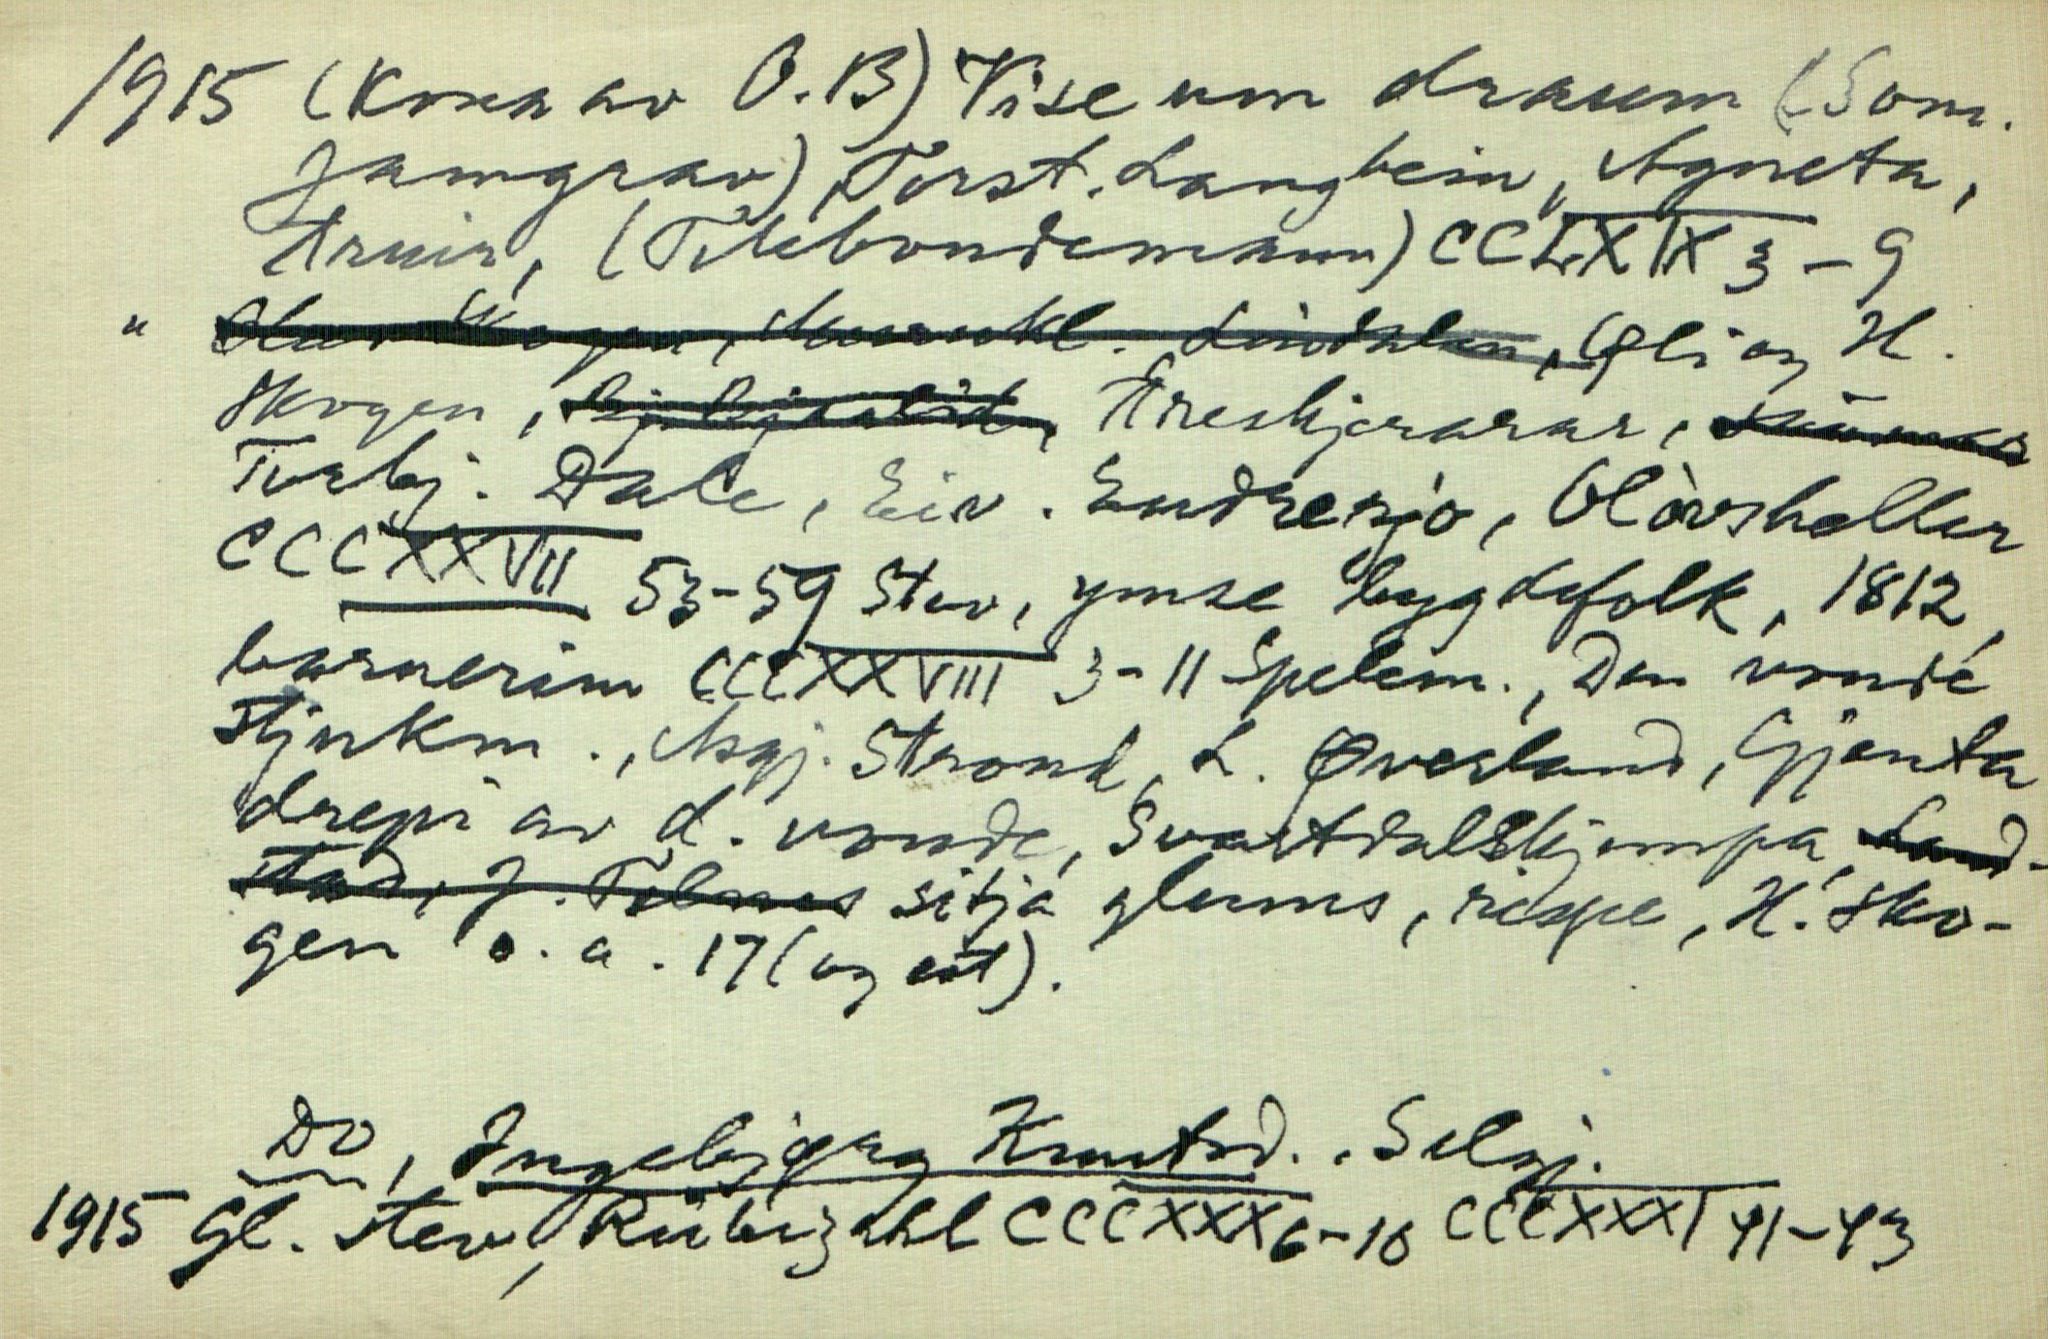 1915 (Kona av O.B) Vise um draum (Som.
Jamgrav) Torst. Langbein, Agneta,
(Tslebondemann) CCLXXIX 3-9
" Olav Skogen, Munkl. Lindalen, Gli og H.
Skogen, Åreskjerarar,
Torbj. Dale, Eiv. Endresjo, Olavsheller
CCCXXVII 53-59 Stev, ymse bygdefolk, 1812,
barnerim CCCXXVIII 3-11 Spelem., Den vonde
stjukm., Asgj. Strond, L. Øverland, Gjenta
drepi av d. vonde, Svartdalskjempa, Land-
stad, J. Tilnes sitja glums, rispe, H. Sko-
gen o. a. 17 (og eit).
Do, Ingebjørg Knutsd., Selgj.
1915 Gl. stev, Rübizahl CCCXXX 6-16 CCCXXXI 41-43